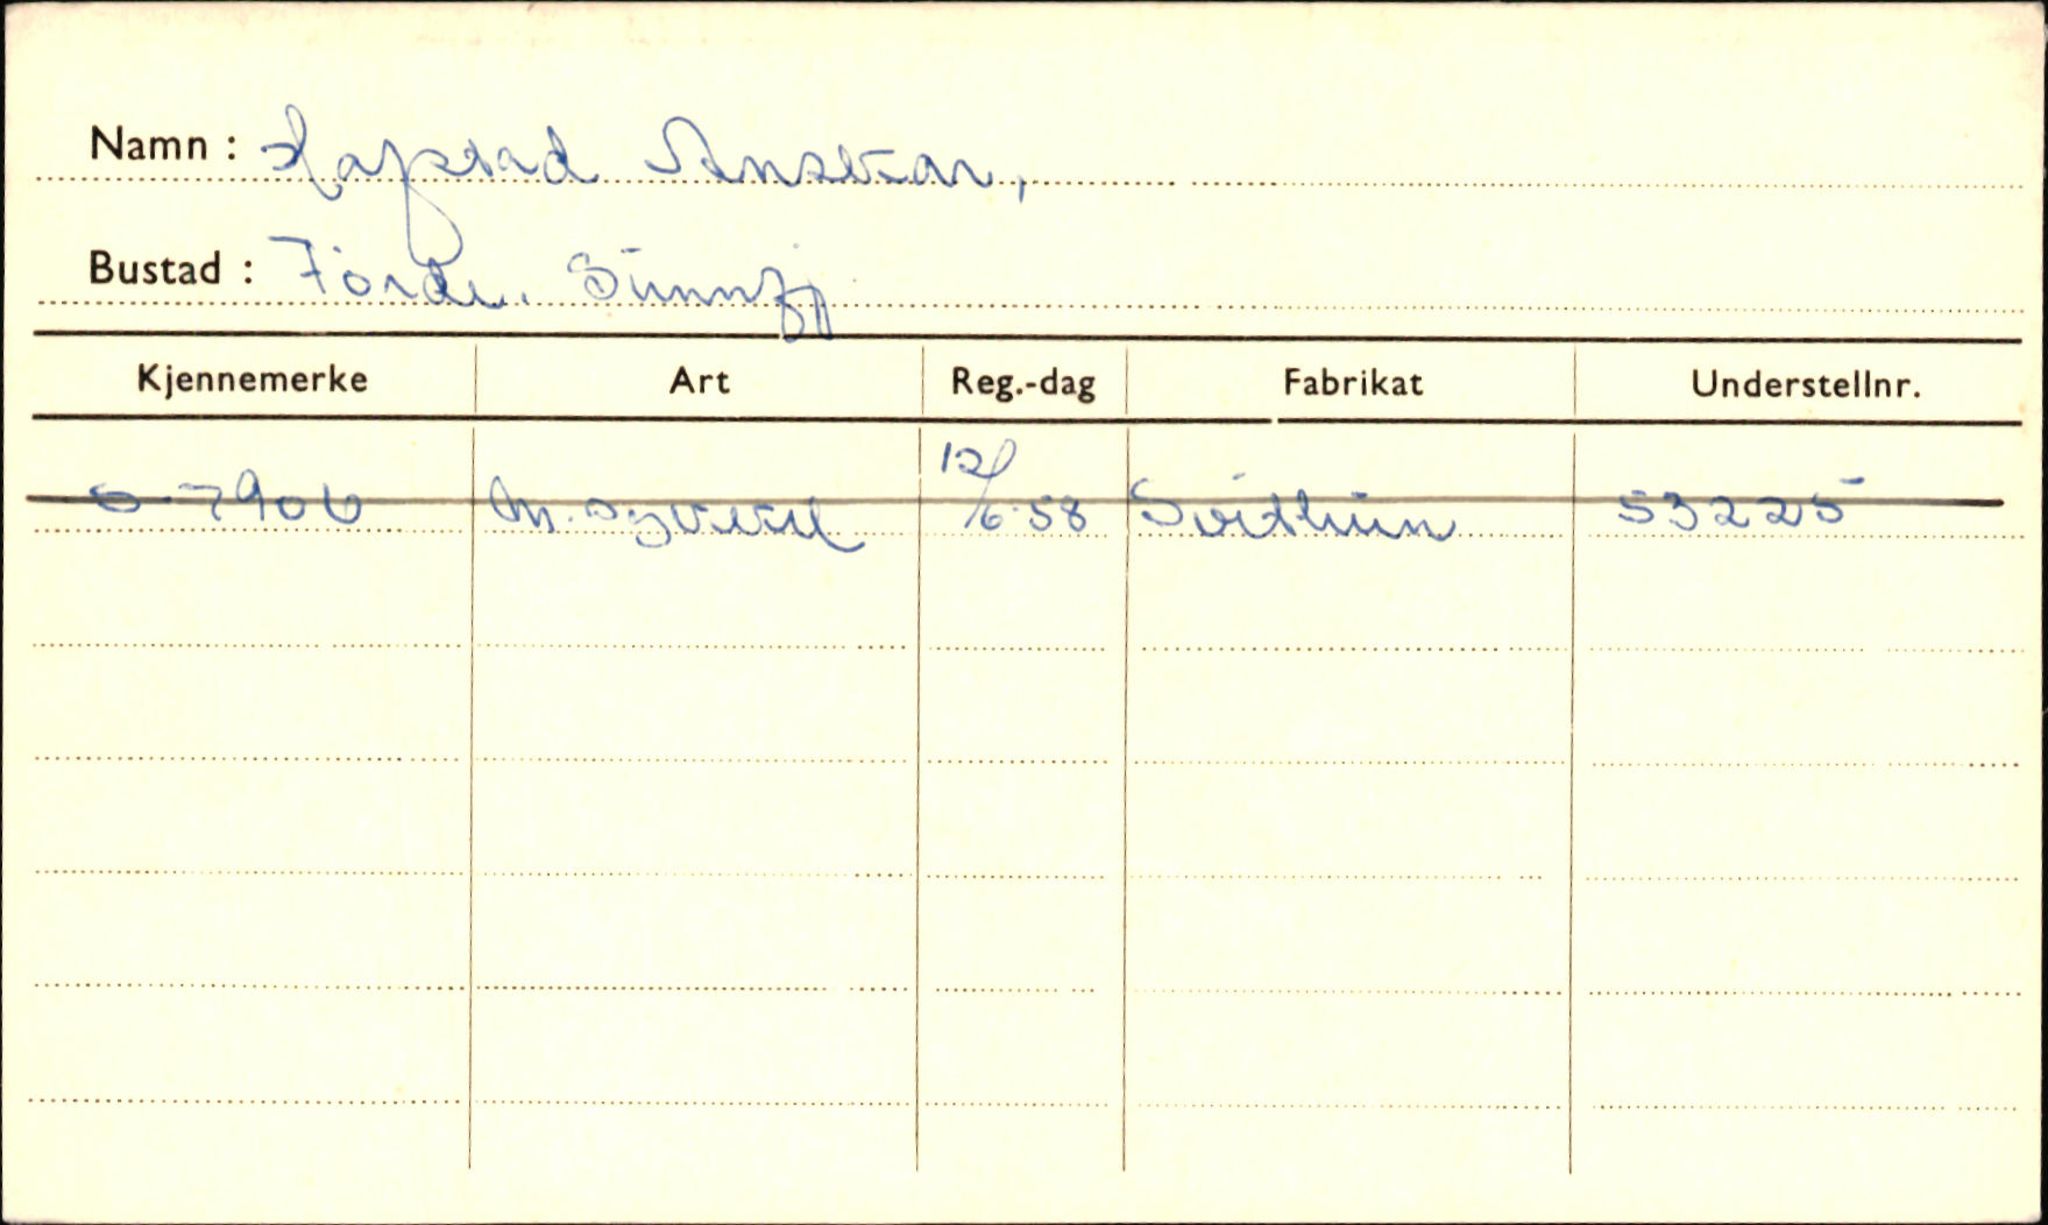 Namn : Hafstad Anskar,
Bustad : Förde. Sunnfj
Kjennemerke Art Reg.-dag Fabrikat Understellnr.
S-7906 M.sykkel 12/6-58 Svithun 53225